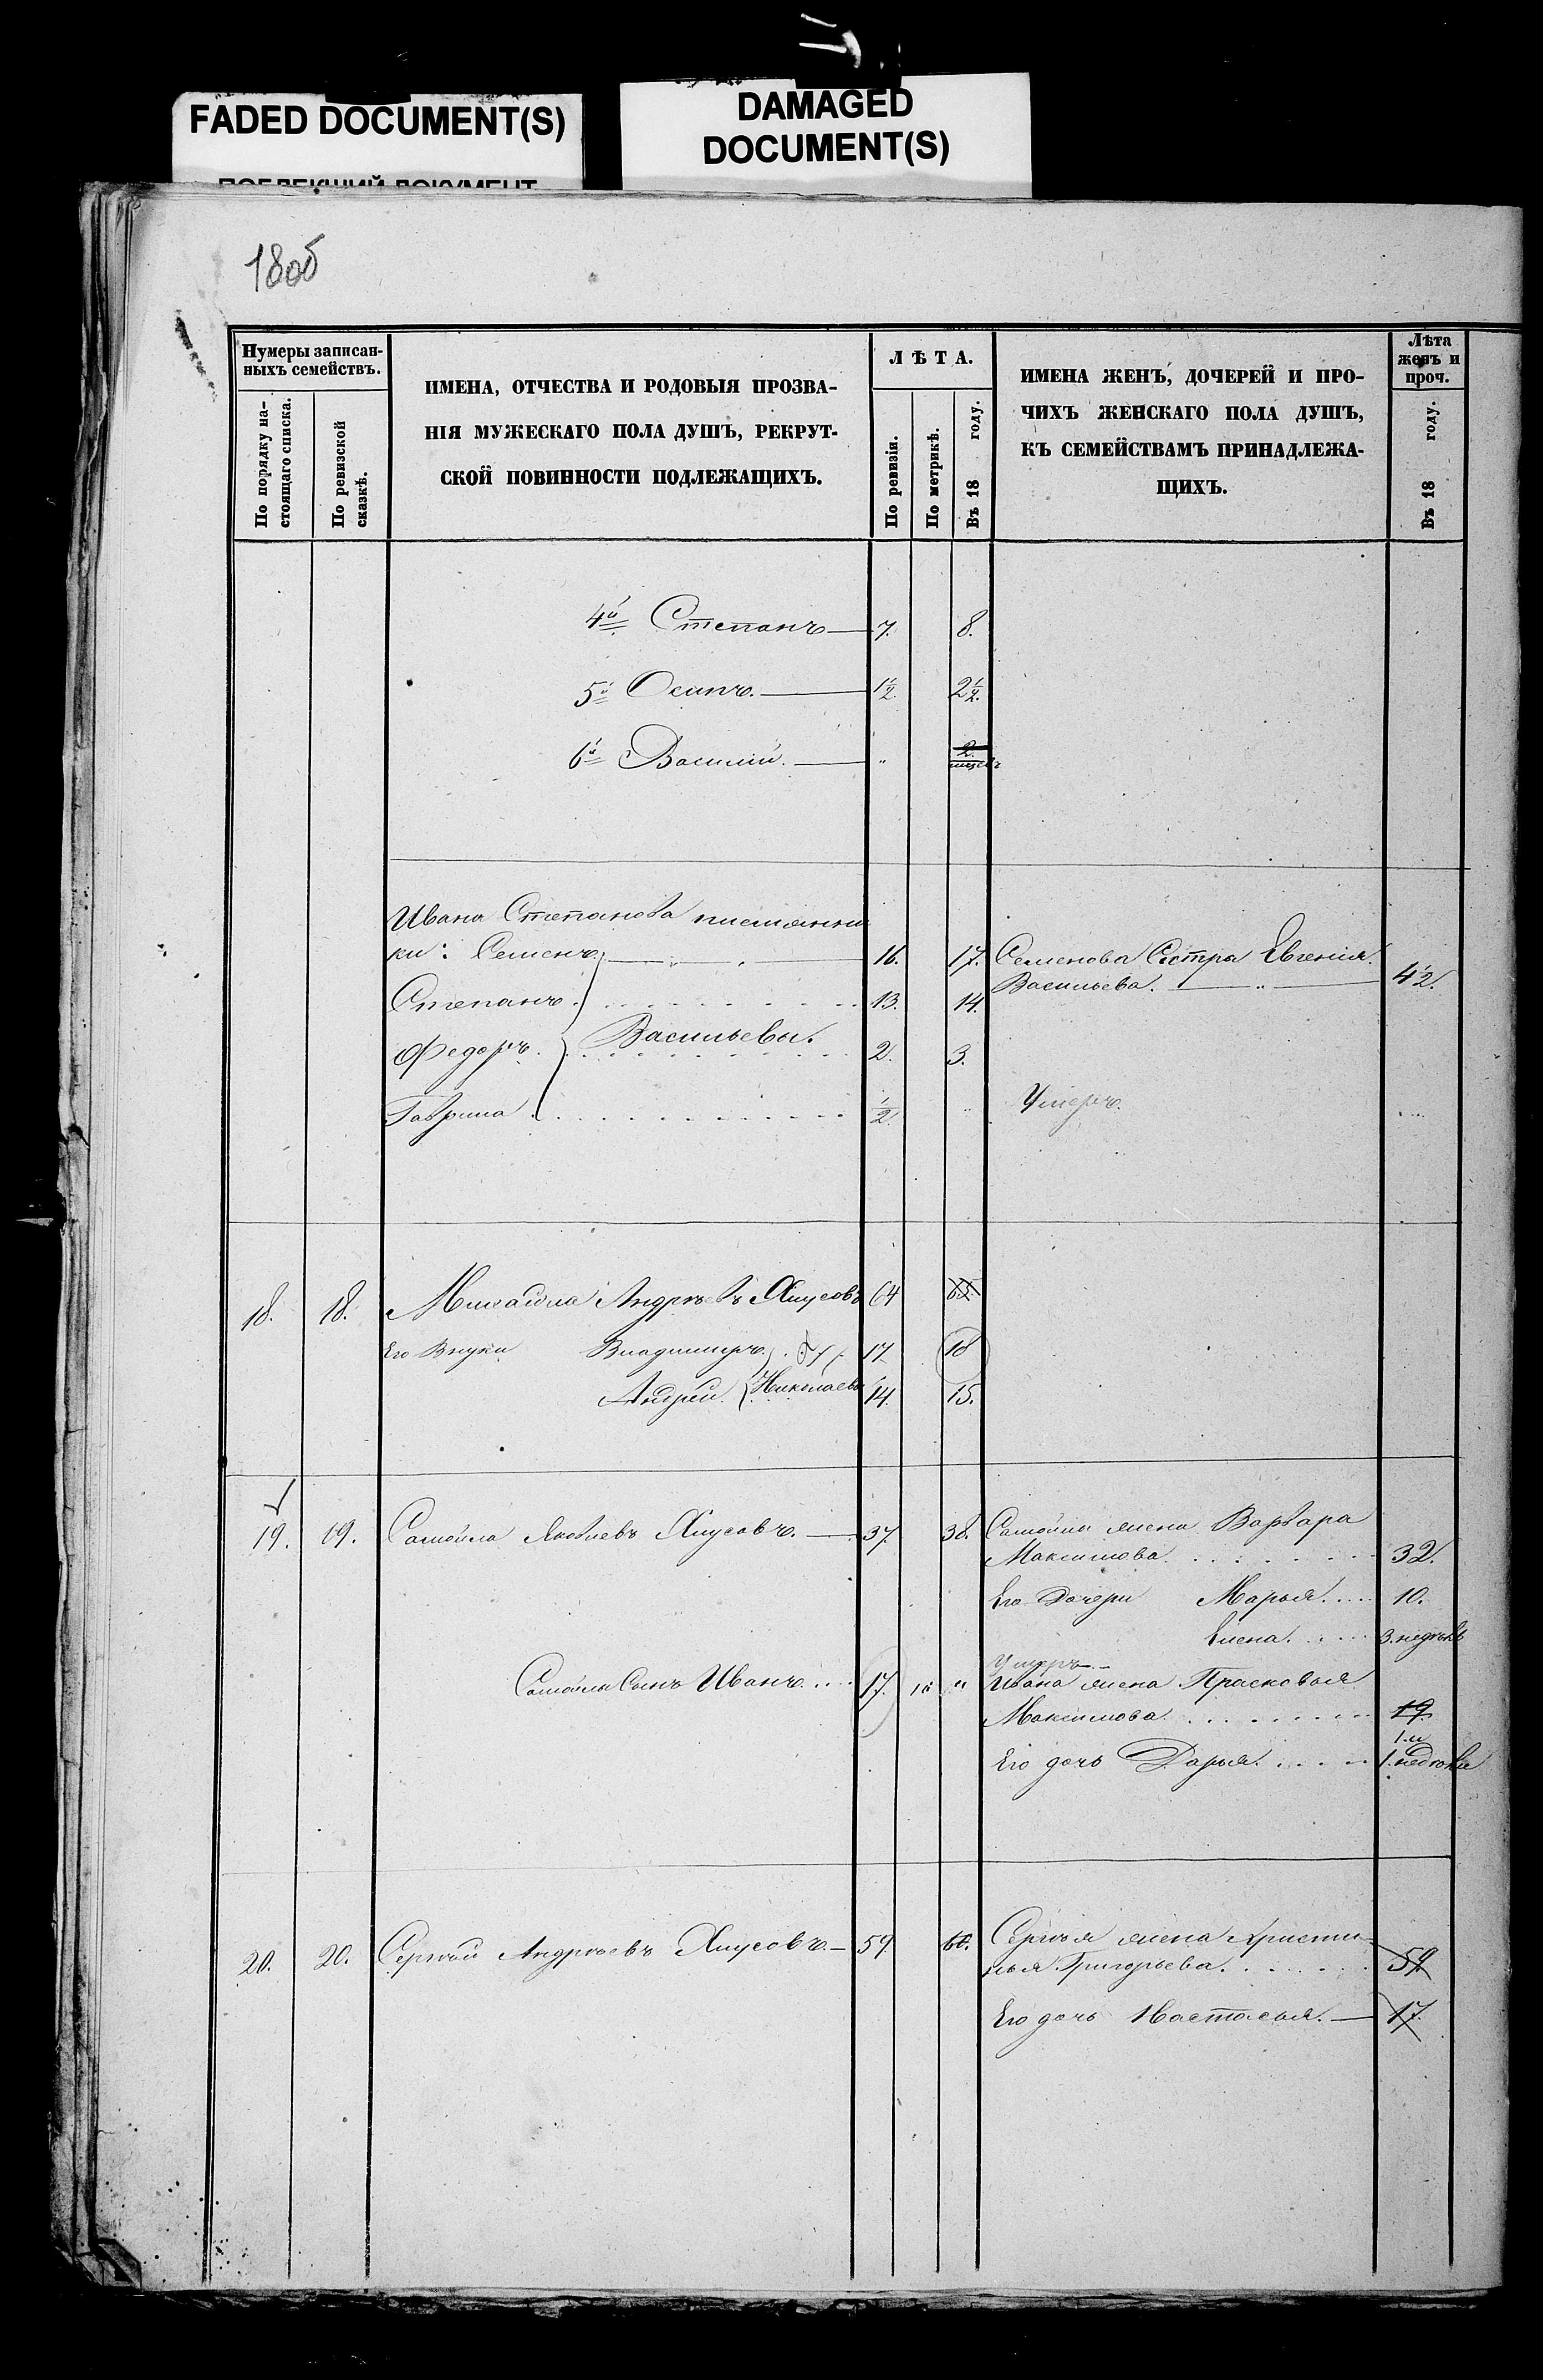 FADED DOCUMENT(S)
DAMAGED
DOCUMENT(S)
180об
Нумеры записан-
ныхъ семействъ.
По порядку на-
стоящаго списка.
По ревизской
сказкѣ.
ИМЕНА, ОТЧЕСТВА И РОДОВЫЯ ПРОЗВА-
НІЯ МУЖЕСКАГО ПОЛА ДУШЪ, РЕКРУТ-
СКОЙ ПОВИННОСТИ ПОДЛЕЖАЩИХЪ.
ЛѢТА.
По ревизіи.
По метрикѣ.
Въ 18 году.
ИМЕНА ЖЕНЪ, ДОЧЕРЕЙ И ПРО-
ЧИХЪ ЖЕНСКАГО ПОЛА ДУШЪ,
КЪ СЕМЕЙСТВАМЪ ПРИНАДЛЕЖА-
ЩИХЪ.
Лѣта
женъ и
проч.
Въ 18 году.
4й Степанъ 7. 8.
5й Осипъ. 1½ 2½.
6й Василій. " 2.
Ивана Степанова племянни
ки: Семенъ 16. 17. Семенова Сестра Евгенія
Васильева. 42.
Степанъ. 13. 14.
Федоръ. Васильевы. 2. 3.
Гаврила ½. Умеръ.
18. 18. Михайла Андреевъ 64 65
Его Внуки Владимиръ. 17 18
Андрей. Николаевы 14. 15.
19. 19. Самойла Яковлевъ 37. 38. Самойлы жена Варвара
Максимова. 32.
Его Дочери Марья. 10.
Елена. 3. недѣль
Умеръ
Самойлы Сынъ Иванъ. 17. " Ивана жена Прасковья
Максимова. 19.
Его дочь Дарья. 1. недѣли
20. 20. Сергѣй Андреевъ 59 60. Сергѣя жена Христи-
нья Григорьева. 59
Его дочь Настасья. 17.